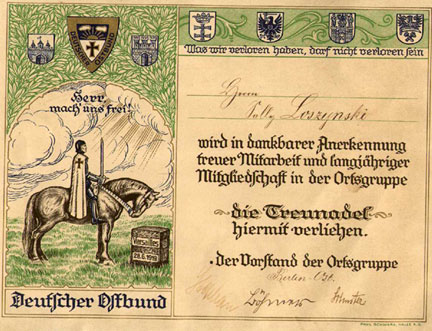 Was wir verloren haben, darf nicht verloren sein
Herr,
mach uns frei!
Versailles
28.6.1919
Deutscher Ostbund
Herrn
Loszynski
wird in dankbarer Anerkennung
treuer Mitarbeit und langjähriger
Mitgliedschaft in der Ortsgruppe
die Treunadel
hiermit verliehen.
der Vorstand der Ortsgruppe
Berlin-Ost.